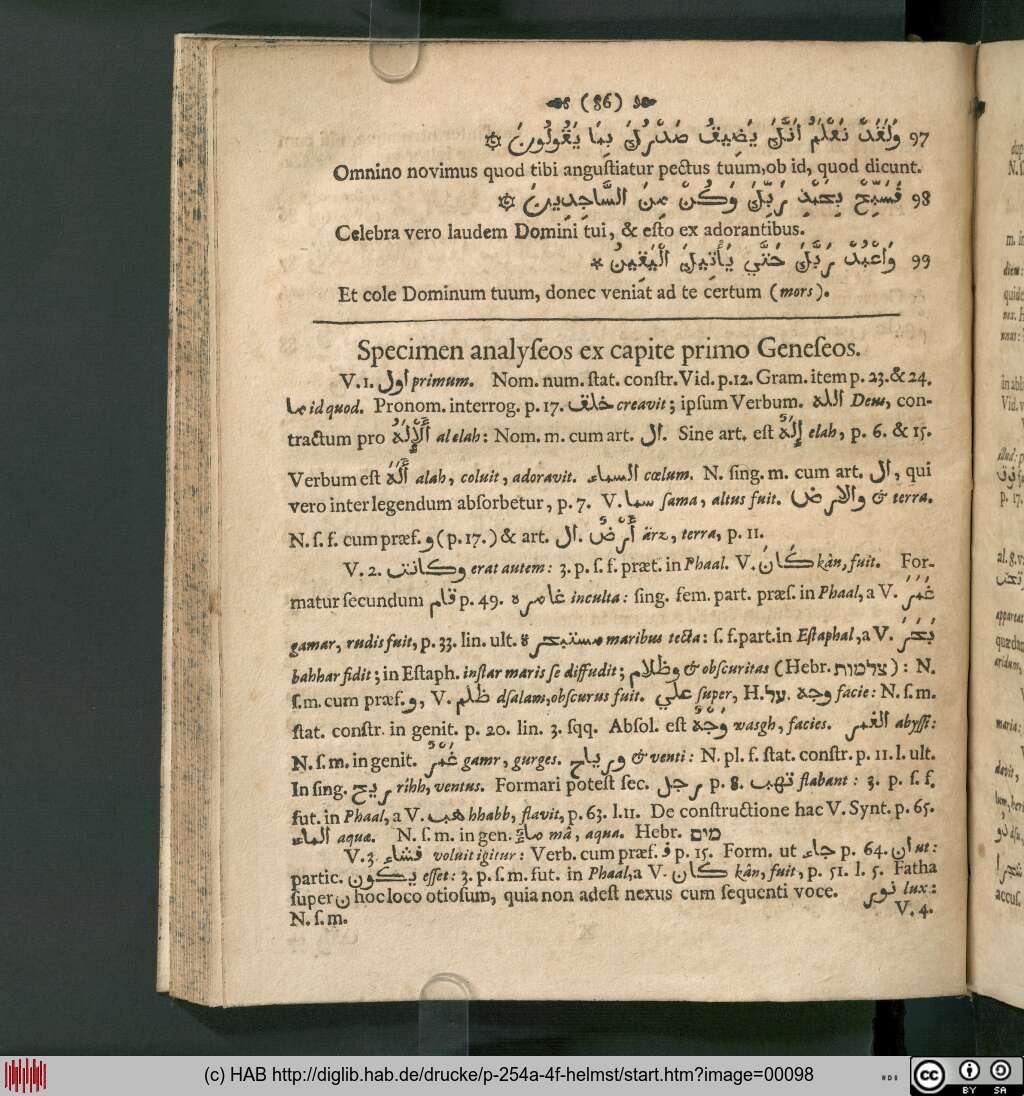 (86)
97 وَلَقَدْ نَعْلَمُ أَنَّكَ يَضِيقُ صَدْرُكَ بِمَا يَقُولُونَ ۞
Omnino novimus quod tibi anguſtiatur pectus tuum, ob id, quod dicunt.
98 فَسَبِّحْ بِحَمْدِ رَبِّكَ وَكُنْ مِنَ السَّاجِدِينَ ۞
Celebra vero laudem Domini tui, & eſto ex adorantibus.
99 وَاعْبُدْ رَبَّكَ حَتَّي يَأْتِيكَ الْيَقِينُ *
Et cole Dominum tuum, donec veniat ad te certum (mors).
Specimen analyſeos ex capite primo Geneſeos.
V. 1. اول primum. Nom. num. ſtat. conſtr. Vid. p. 12. Gram. item p. 23. & 24.
ما id quod. Pronom. interrog. p. 17. خلق creavit; ipſum Verbum. الله Deus, con-
tractum pro أَلْإِلَهُ alelah: Nom. m. cum art. ال. Sine art. eſt إِلَهٌ elah, p. 6. & 15.
Verbum eſt أَلَهَ alah, coluit, adoravit. السماء cœlum. N. ſing. m. cum art. ال, qui
vero inter legendum abſorbetur, p. 7. V. سما ſama, altus fuit. والارض & terra.
N. ſ. f. cum præf. و (p. 17.) & art. ال. أَرْضٌ ärz, terra, p. 11.
V. 2. وكانت erat autem: 3. p. ſ. f. præt. in Phaal. V. كَانَ kân, fuit. For-
matur ſecundum قام p. 49. غامرة inculta: ſing. fem. part. præſ. in Phaal, a V. غَمَرَ
gamar, rudis fuit, p. 33. lin. ult. مستبحرة maribus tecta: ſ. f. part. in Eſtaphal, a V. بَحَرَ
bahhar fidit; in Eſtaph. inſtar maris ſe diffudit; وظلام & obſcuritas (Hebr. צלמות): N.
ſ. m. cum præf. و, V. ظلم dſalam, obſcurus fuit. علي ſuper, H. על. وجه facie: N. ſ. m.
ſtat. conſtr. in genit. p. 20. lin. 3. ſqq. Abſol. eſt وَجْهٌ wasgh, facies. الغمر abyſſi:
N. ſ. m. in genit. غَمْرٌ gamr, gurges. ورياح & venti: N. pl. f. ſtat. conſtr. p. 11. l. ult.
In ſing. ريح rihh, ventus. Formari poteſt ſec. رجل p. 8. تهب flabant: 3. p. ſ. f.
fut. in Phaal, a V. هب hhabb, flavit, p. 63. l. 11. De conſtructione hac V. Synt. p. 65.
الماء aquæ. N. ſ. m. in gen. ماء mâ, aqua. Hebr. מים
V. 3. فشاء voluit igitur: Verb. cum præf. ف p. 15. Form. ut جاء p. 64. ان ut:
partic. يكون eſſet: 3. p. ſ. m. fut. in Phaal, a V. كان kân, fuit, p. 51. l. 5. Fatha
ſuper ن hoc loco otioſum, quia non adeſt nexus cum ſequenti voce. نور lux:
N. ſ. m. V. 4.
(c) HAB http://diglib.hab.de/drucke/p-254a-4f-helmst/start.htm?image=00098
cc BY SA